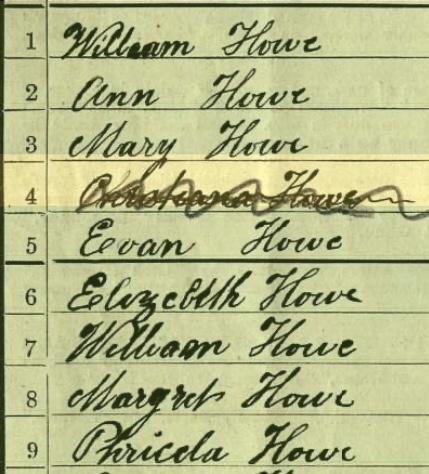 1 William Howe
2 Ann Howe
3 Mary Howe
4 Christiana Howe
5 Eevan Howe
6 Elizebth Howe
7 William Howe
8 Margret Howe
9 Phricela Howe